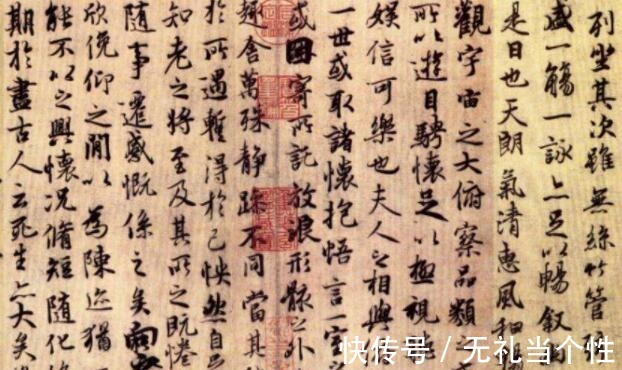 列坐其次雖無絲竹管
盛一觴一詠亦足以暢叙
是日也天朗氣清惠風和
觀宇宙之大俯察品類之
所以遊目騁懷足以極視
娛信可樂也夫人之相與
一世或取諸懷抱悟言一室
或因寄所託放浪形骸之外
趣舍萬殊静躁不同當其
於所遇蹔得於己怏然自
知老之將至及其所之既惓
隨事遷感慨係之矣向
欣俛仰之間以為陳迹猶
能不以之興懷況脩短隨化
期於盡古人云死生亦大矣
快传号 / 无礼当个性